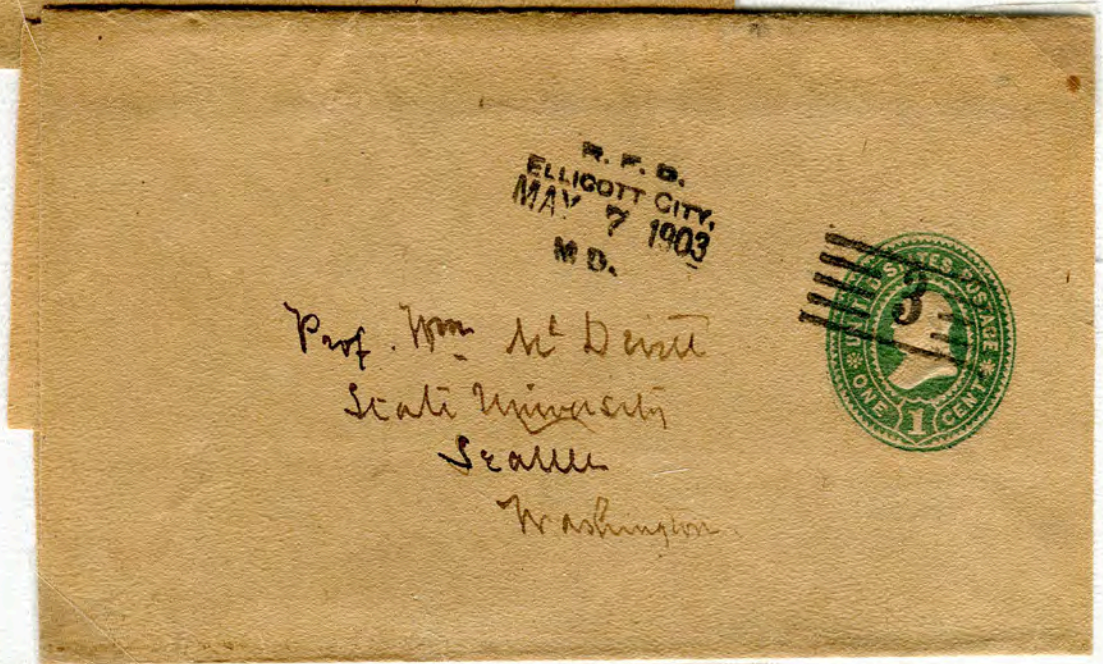 R. F. D.
ELLICOTT CITY,
MAY 7 1903
MD.
3
UNITED STATES POSTAGE
ONE 1 CENT
Prof. Wm Mc
State University
Seattle
Washington